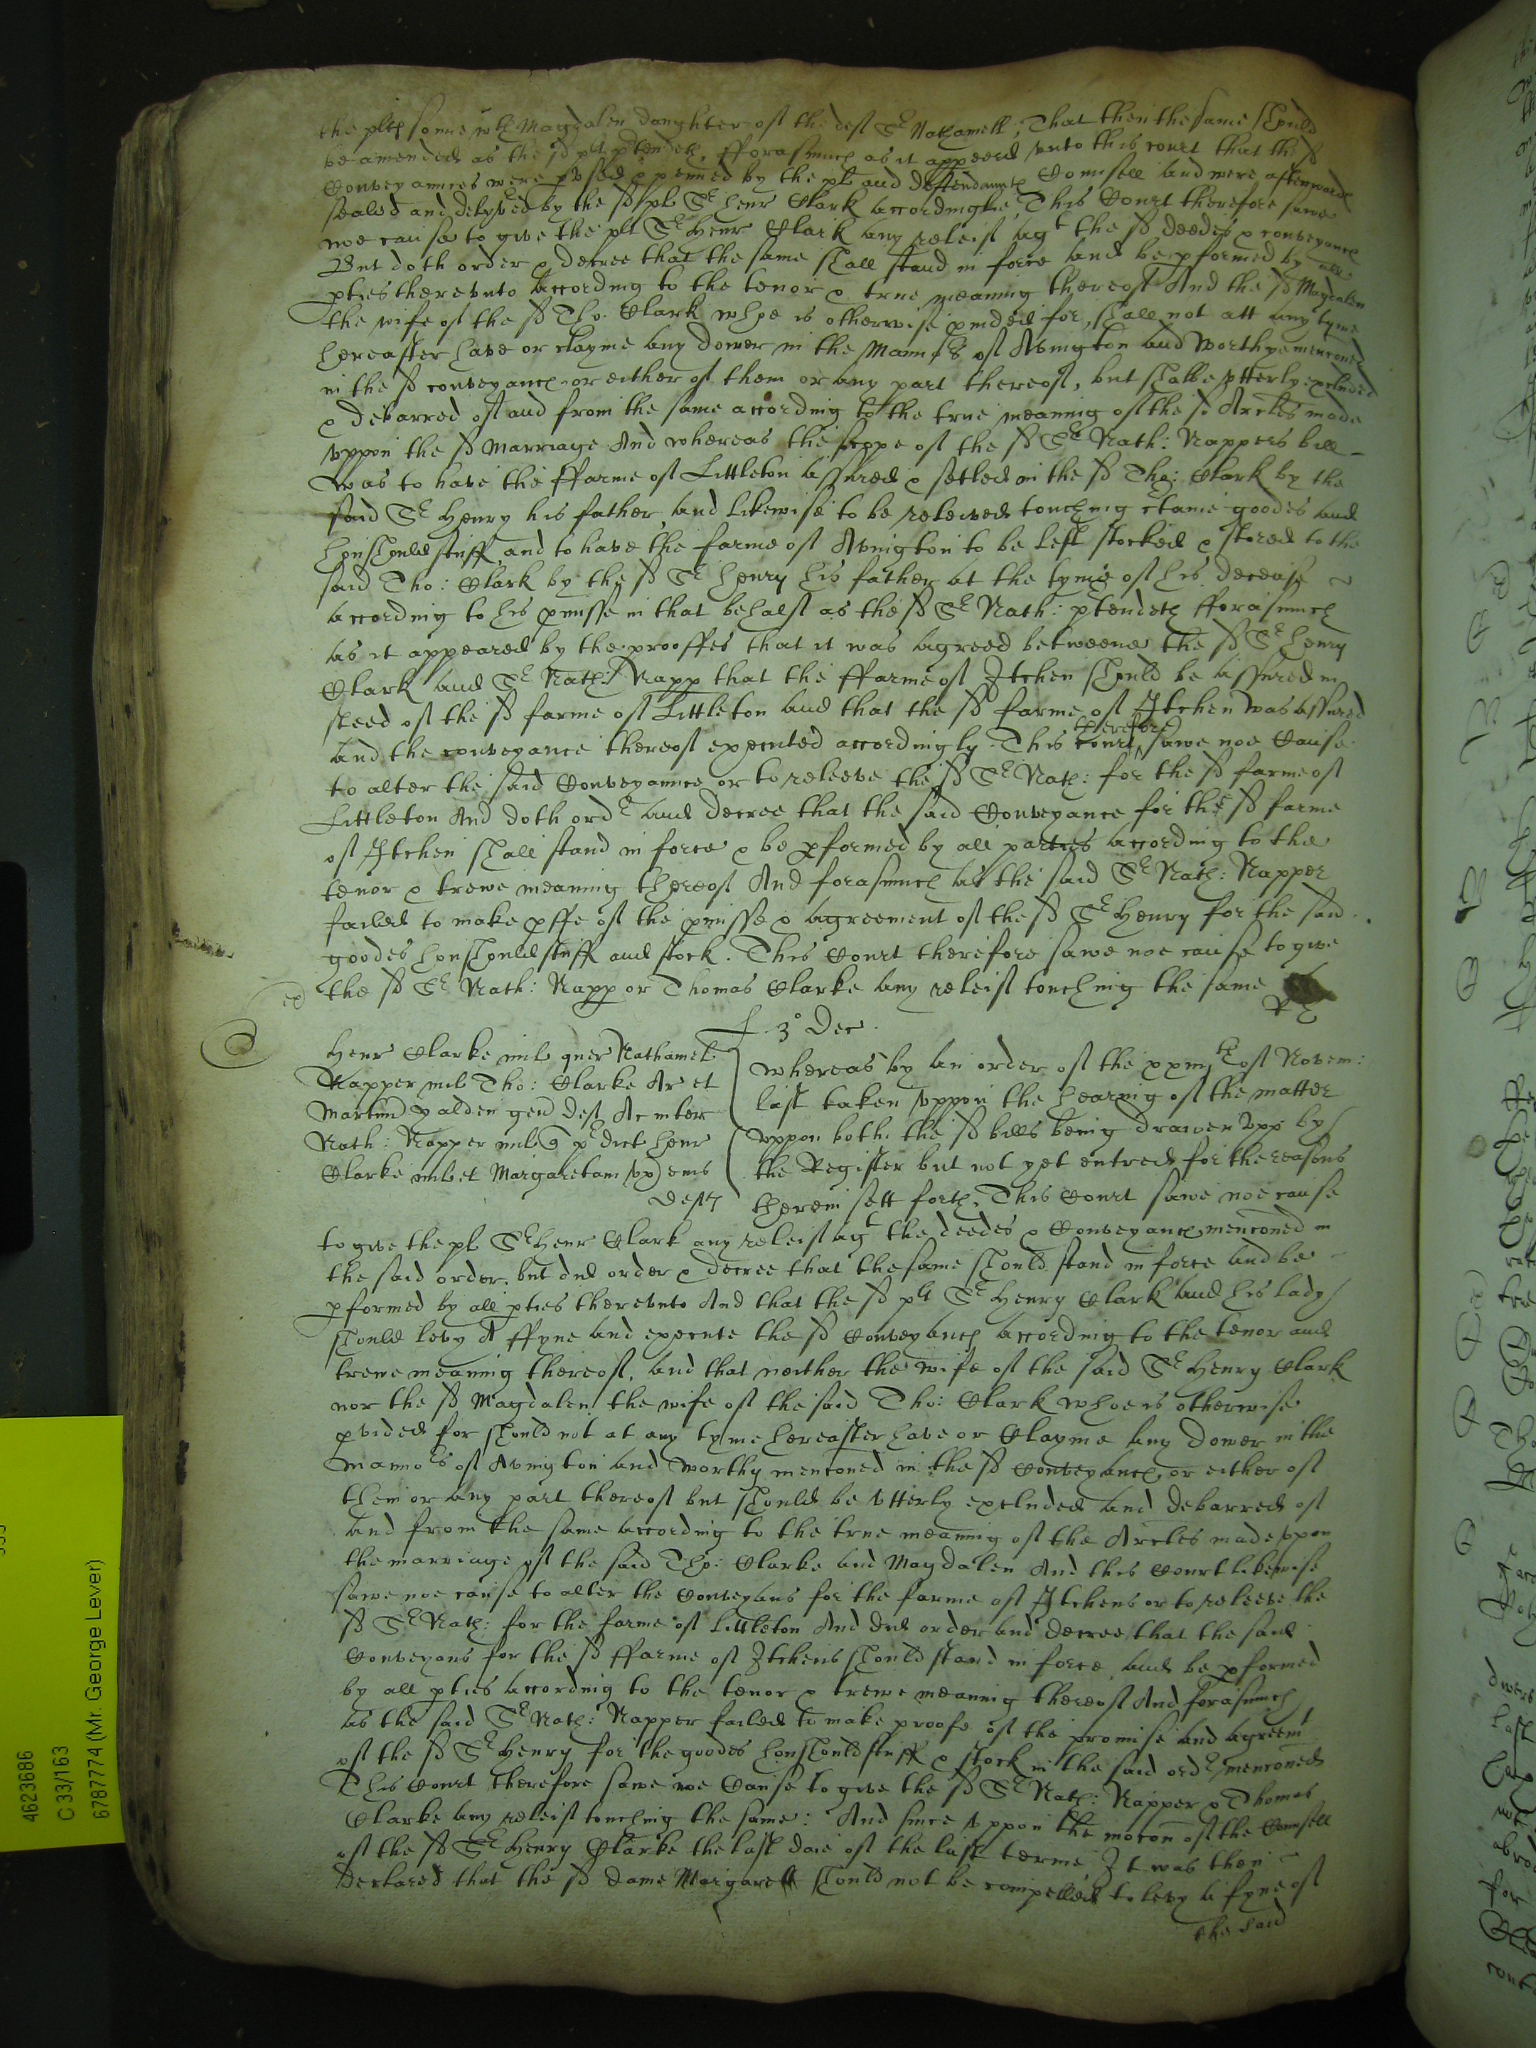 the plts sonne wth Magdalen daughter of the deft Sr Nathaniell; That then the same should
be amended as the sd plt ptendeth, fforasmuch as it appeered unto this court that the sd
Conveyances were pused & penned by the plt and deffendaunts Counsell and were afterwards
sealed and delyved by the sd plt Sr Henr Clark accordinglie, This Court therefore sawe
noe cause to give the plt Sr Henr Clark any releif agt the sd deedes & conveyance
But doth order & decree that the same shall stand in force and be pformed by all
pties thereunto according to the tenor & true meaning thereof And the sd Magdalen
the wife of the sd Tho. Clark whoe is otherwise pvided for, shall not att any tyme
hereafter have or clayme any dower in the Mannors of Avington and Worthye menconed
in the sd conveyance or either of them or any part thereof, but shalbe utterly excluded
& debarred of and from the same according to the true meaning of the sd Arcles made
uppon the sd marriage And whereas the scope of the sd Sr Nath: Nappers bill
was to have the ffarme of Littleton assured & setled on the sd Tho: Clark by the
said Sr Henry his father and likewise to be releived touching ctaine goodes and
houshould stuff and to have the farme of Avington to be left stocked & stored to the
said Tho: Clark by the sd Sr Henry his father at the tyme of his decease
according to his pmisse in that behalf as the sd Sr Nath: ptendeth fforasmuch
as it appeared by the prooffes that it was agreed betweene the sd Sr Henry
Clark and Sr Nath: Napp that the ffarme of Itchen should be assured in
steed of the sd farme of Littleton and that the sd farme of Itchen was assured
and the conveyance thereof executed accordingly. This Court therefore sawe noe Cause
to alter the said Conveyance or to releeve the sd Sr Nath: for the sd farme of
Littleton And doth ordr and decree that the said Conveyance for the sd farme
of Itchen shall stand in force & be pformed by all parties according to the
tenor & trewe meaning thereof And forasmuch as the said Sr Nath: Napper
failed to make pffe of the pmisse & agreement of the sd Sr Henry for the said
goodes houshould stuff and stock. This Court therefore sawe noe cause to give
the sd Sr Nath: Napp or Thomas Clarke any releif touching the same
3o Dec.
Henr Clarke mil quer Nathaniel
Napper mil Tho: Clarke Ar et
Martin Yalden gen deft Ac inter
Nath: Napper mil q pdict Henr
Clarke mil et Margaretam ux eius
deftes
Whereas by an order of the xxiiith of Novem:
last taken uppon the hearing of the matter
uppon both the sd bills being drawen upp by
the Register but not yet entred for the reasons
therein sett forth, This Court sawe noe cause
to give the plt Sr Henr Clark any releif agt the deedes & Conveyance menconed in
the said order, but did order & decree that the same should stand in force and be
pformed by all pties thereunto And that the sd plt Sr Henry Clark and his lady
should levy A ffyne and execute the sd Conveyance according to the tenor and
trewe meaning thereof, and that neither the wife of the said Sr Henry Clark
nor the sd Magdalen the wife of the said Tho: Clark whoe is otherwise
pvided for should not at any tyme hereafter have or Clayme any Dower in the
mannors of Avington and Worthy menconed in the sd Conveyance or either of
them or any part thereof but should be utterly excluded and debarred of
and from the same according to the true meaning of the Arcles made uppon
the marriage of the said Tho: Clarke and Magdalen And this Court likewise
sawe noe cause to alter the Conveyans for the farme of Itchens or to releeve the
sd Sr Nath: for the farme of Littleton And did order and decree that the said
Conveyans for the sd ffarme of Itchens should stand in force and be pformed
by all pties according to the tenor & trewe meaning thereof And forasmuch
as the said Sr Nath: Napper failed to make proofe of the promise and agreemt
of the sd Sr Henry for the goodes houshould stuff & stock in the said ordr menconed
This Court therefore sawe noe Cause to give the sd Sr Nath: Napper & Thomas
Clarke any releif touching the same: And since uppon the mocon of the Counsell
of the sd Sr Henry Clarke the last daie of the last terme It was then
declared that the sd dame Margarett should not be compelled to levy a fyne of
the said
4623686
C 33/163
6787774 (Mr. George Lever)